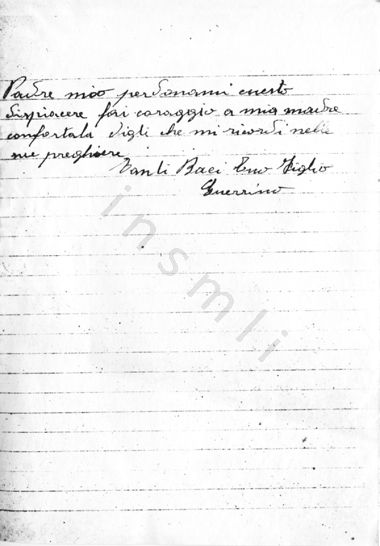 Padre mio perdonami questo
dispiacere fai coraggio a mia madre
confortala digli che mi ricordi nelle
sue preghiere
Tanti Baci tuo Figlio
Guerrino
insmli